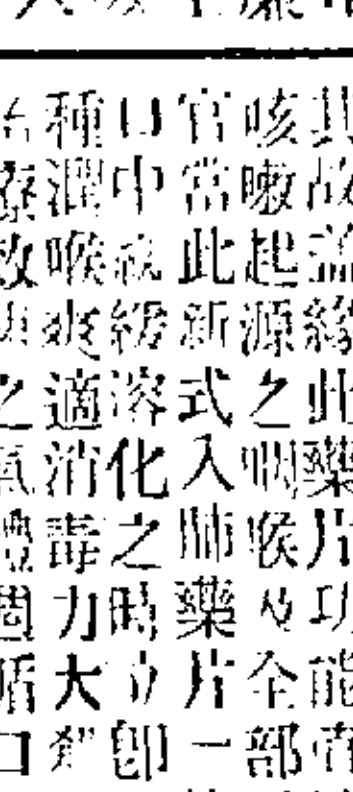 其故蓋緣此藥片功能直
咳嗽起源之咽喉及全部
官當此新式入肺藥片一
口中緩溶化之時立卽
種潤喉爽適消毒力大
治療效之氣體周口